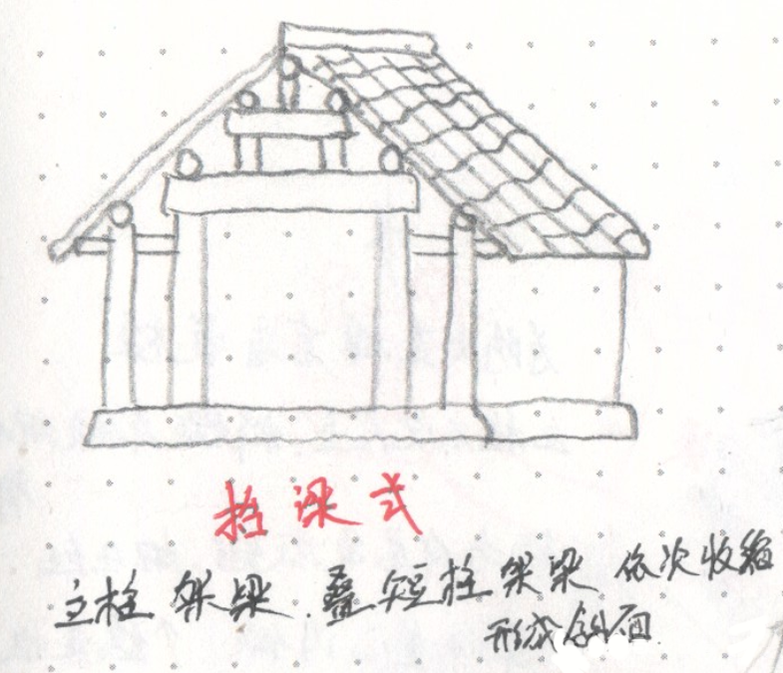 抬梁式
主柱架梁.叠短柱架梁 依次收缩
形成斜面.